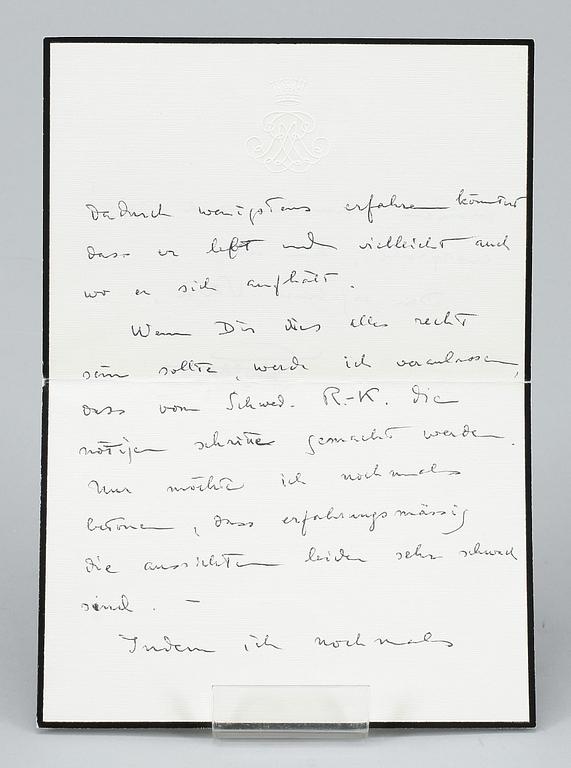 dadurch wenigstens erfahren könntest
dass er lebt und vielleicht auch
wo er sich aufhält.
Wenn Dir dies alles recht
sein sollte, werde ich veranlassen,
dass vom Schwed. R.-K. die
nötigen schritte gemacht werden.
Nur möchte ich nochmals
betonen, dass erfahrungsmässig
die aussichten leider sehr schwach
sind. –
Indem ich nochmals